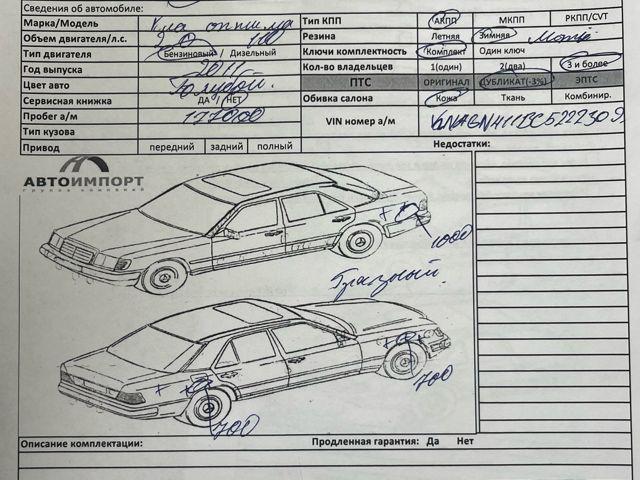 Сведения об автомобиле:
Марка/Модель Киа оптима Тип КПП АКПП МКПП РКПП/CVT
Объем двигателя/л.с. Резина Летняя Зимняя
Тип двигателя Бензиновый / Дизельный Ключи комплектность Комплект Один ключ
Год выпуска 2011 Кол-во владельцев 1(один) 2(два) 3 и более
Цвет авто Голубой. ПТС ОРИГИНАЛ ДУБЛИКАТ(-3%) ЭПТС
Сервисная книжка ДА / НЕТ Обивка салона Кожа Ткань Комбинир.
Пробег а/м 177000 VIN номер а/м
Тип кузова
Привод передний задний полный Недостатки:
АВТОИМПОРТ
группа компаний
1000
Грязный
700
700
Описание комплектации: Продленная гарантия: Да Нет